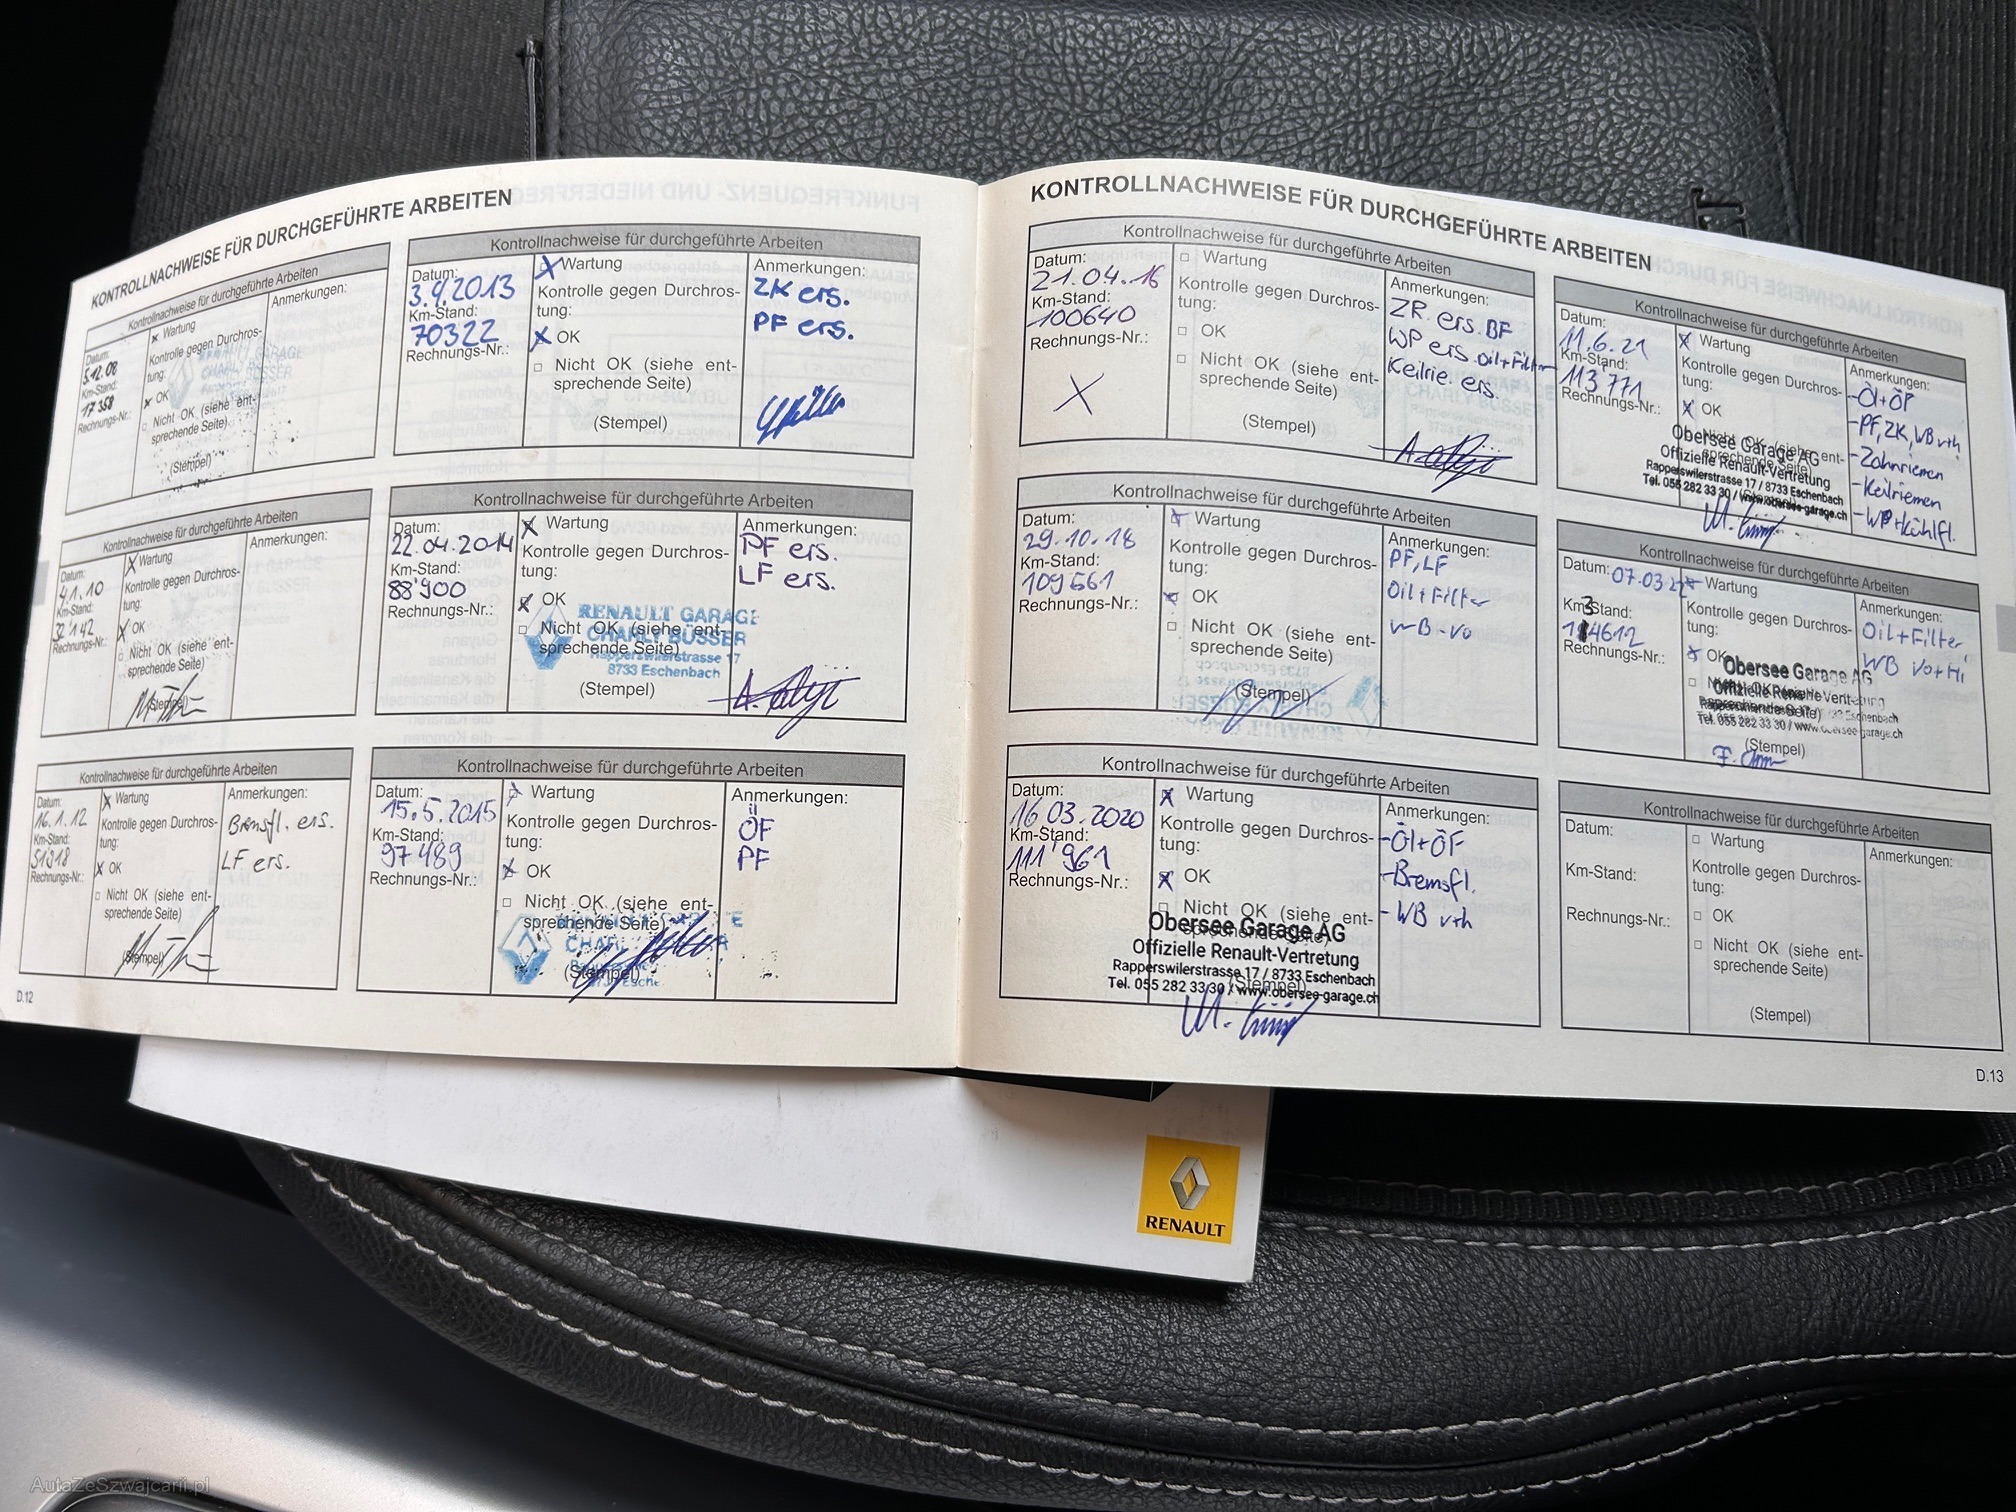 KONTROLLNACHWEISE FÜR DURCHGEFÜHRTE ARBEITEN
Kontrollnachweise für durchgeführte Arbeiten
Datum:
5.12.08
Km-Stand:
17'358
Rechnungs-Nr.:
Wartung
Kontrolle gegen Durchros-
tung:
OK
Nicht OK (siehe ent-
sprechende Seite)
(Stempel)
Anmerkungen:
Kontrollnachweise für durchgeführte Arbeiten
Datum:
4.1.10
Km-Stand:
32'142
Rechnungs-Nr.:
Wartung
Kontrolle gegen Durchros-
tung:
OK
Nicht OK (siehe ent-
sprechende Seite)
(Stempel)
Anmerkungen:
Kontrollnachweise für durchgeführte Arbeiten
Datum:
16.1.12
Km-Stand:
51318
Rechnungs-Nr.:
Wartung
Kontrolle gegen Durchros-
tung:
OK
Nicht OK (siehe ent-
sprechende Seite)
(Stempel)
Anmerkungen:
Bremsfl. ers.
LF ers.
D.12
Kontrollnachweise für durchgeführte Arbeiten
Datum:
3.4.2013
Km-Stand:
70322
Rechnungs-Nr.:
Wartung
Kontrolle gegen Durchros-
tung:
OK
Nicht OK (siehe ent-
sprechende Seite)
(Stempel)
Anmerkungen:
ZK ers.
PF ers.
Kontrollnachweise für durchgeführte Arbeiten
Datum:
22.04.2014
Km-Stand:
88'900
Rechnungs-Nr.:
Wartung
Kontrolle gegen Durchros-
tung:
OK
Nicht OK (siehe ent-
sprechende Seite)
RENAULT GARAGE
CHARLY BÜSSER
Rapperswilerstrasse 17
8733 Eschenbach
(Stempel)
Anmerkungen:
PF ers.
LF ers.
Kontrollnachweise für durchgeführte Arbeiten
Datum:
15.5.2015
Km-Stand:
97'489
Rechnungs-Nr.:
Wartung
Kontrolle gegen Durchros-
tung:
OK
Nicht OK (siehe ent-
sprechende Seite)
(Stempel)
Anmerkungen:
ÖF
PF
KONTROLLNACHWEISE FÜR DURCHGEFÜHRTE ARBEITEN
Kontrollnachweise für durchgeführte Arbeiten
Datum:
21.04.16
Km-Stand:
100640
Rechnungs-Nr.:
Wartung
Kontrolle gegen Durchros-
tung:
OK
Nicht OK (siehe ent-
sprechende Seite)
(Stempel)
Anmerkungen:
ZR. ers. BF
WP ers. Oil+Filter
Keilrie. ers.
Kontrollnachweise für durchgeführte Arbeiten
Datum:
29.10.18
Km-Stand:
109561
Rechnungs-Nr.:
Wartung
Kontrolle gegen Durchros-
tung:
OK
Nicht OK (siehe ent-
sprechende Seite)
(Stempel)
Anmerkungen:
PF, LF
Oil+Filter
WB-Vo
Kontrollnachweise für durchgeführte Arbeiten
Datum:
16 03. 2020
Km-Stand:
111'961
Rechnungs-Nr.:
Wartung
Kontrolle gegen Durchros-
tung:
OK
Nicht OK (siehe ent-
sprechende Seite)
Obersee Garage AG
Offizielle Renault-Vertretung
Rapperswilerstrasse 17 / 8733 Eschenbach
Tel. 055 282 33 30 / www.obersee-garage.ch
(Stempel)
Anmerkungen:
-Öl+ÖF
-Bremsfl.
-WB v+h
Kontrollnachweise für durchgeführte Arbeiten
Datum:
11.6.21
Km-Stand:
113'771
Rechnungs-Nr.:
Wartung
Kontrolle gegen Durchros-
tung:
OK
Nicht OK (siehe ent-
sprechende Seite)
Obersee Garage AG
Offizielle Renault-Vertretung
Rapperswilerstrasse 17 / 8733 Eschenbach
Tel. 055 282 33 30 / www.obersee-garage.ch
Anmerkungen:
-Öl+ÖF
-PF, ZK, WB v+h
-Zahnriemen
-Keilriemen
-WP+Kühlfl.
Kontrollnachweise für durchgeführte Arbeiten
Datum:
07.03.22
Km-Stand:
Rechnungs-Nr.:
Wartung
Kontrolle gegen Durchros-
tung:
OK
Obersee Garage AG
Tel. 055 282 33 30 / www.obersee-garage.ch
(Stempel)
Anmerkungen:
Oil+Filter
WB Vo+Hi
Kontrollnachweise für durchgeführte Arbeiten
Datum:
Km-Stand:
Rechnungs-Nr.:
Wartung
Kontrolle gegen Durchros-
tung:
OK
Nicht OK (siehe ent-
sprechende Seite)
(Stempel)
Anmerkungen:
D.13
RENAULT
AutaZeSzwajcarii.pl